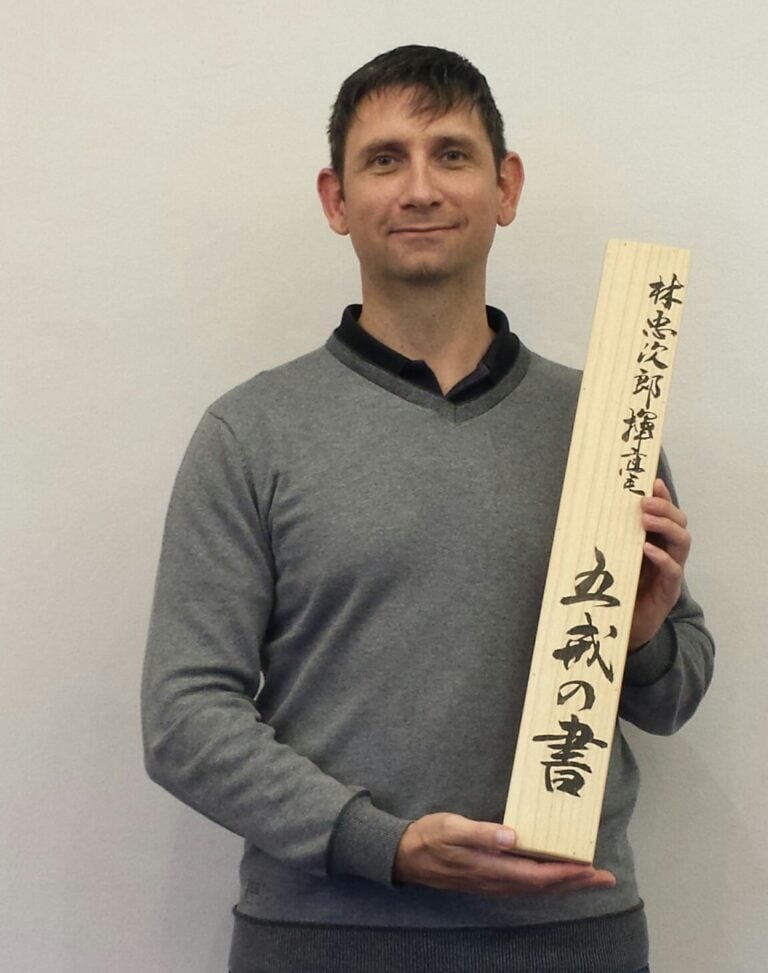 林忠次郎揮毫
五戒の書